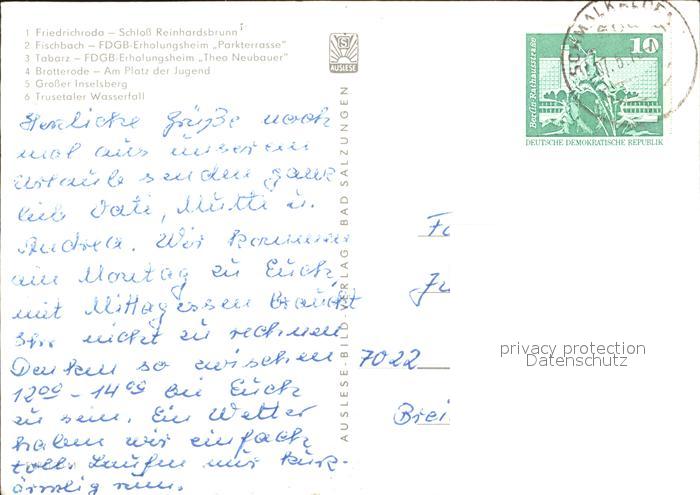 1 Friedrichroda – Schloß Reinhardsbrunn
2 Fischbach – FDGB-Erholungsheim „Parkterrasse“
3 Tabarz – FDGB-Erholungsheim „Theo Neubauer“
4 Brotterode – Am Platz der Jugend
5 Großer Inselsberg
6 Trusetaler Wasserfall
Herzliche Grüße noch
mal aus unserem
Urlaub senden ganz
lieb Vati, Mutti u.
Andrea. Wir kommen
am Montag zu Euch,
mit Mittagessen braucht
Ihr nicht zu rechnen
Denken so zwischen
12⁰⁰ - 14⁰⁰ bei Euch
zu sein. Ein Wetter
haben wir einfach
toll. Laufen nur kurz-
ärmlig rum.
AUSLESE
AUSLESE-BILD-VERLAG BAD SALZUNGEN
SCHMALKALDEN
10
Berlin-Rathausstraße
DEUTSCHE DEMOKRATISCHE REPUBLIK
7022
privacy protection
Datenschutz